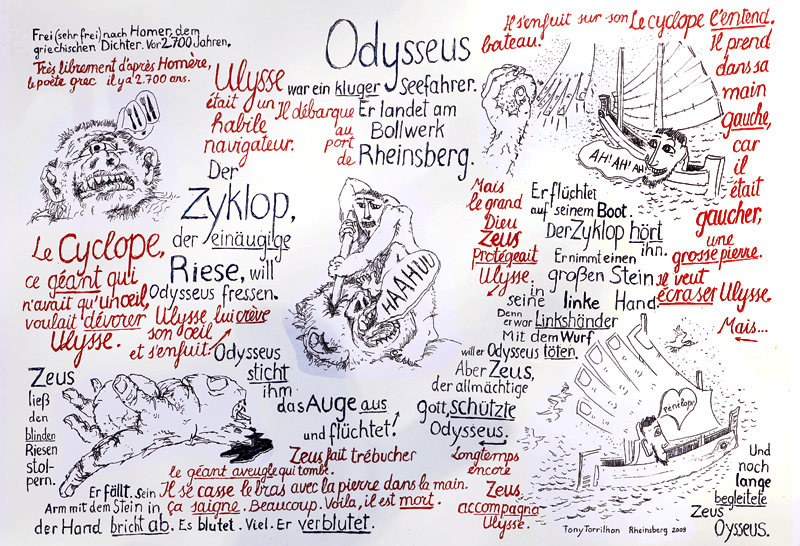 Frei (sehr frei) nach Homer, dem
griechischen Dichter. Vor 2.700 Jahren.
Très librement d'après Homère,
le poète grec il y a 2.700 ans.
Odysseus
war ein kluger Seefahrer.
Er landet am
Bollwerk
Rheinsberg.
Ulysse
était un
habile
navigateur.
Il débarque
au
port
de
Der
Zyklop,
der einäugige
Riese, will
Odysseus fressen.
Le Cyclope,
ce géant qui
n'avait qu'un oeil,
voulait dévorer
Ulysse.
Ulysse lui crève
son oeil
et s'enfuit
HAAHUU
Odysseus
sticht
ihm
das Auge aus
und flüchtet!
Il s'enfuit sur son
bateau.
Le cyclope l'entend.
Il prend
dans sa
main
gauche,
car
il
était
gaucher,
une
grosse pierre.
Il veut
écraser Ulysse
Mais...
AH! AH! AH!
Er flüchtet
auf seinem Boot.
Der Zyklop hört
ihn.
Er nimmt einen
großen Stein
in
seine linke Hand.
Denn
er war Linkshänder
Mit dem Wurf
will er Odysseus töten.
Mais
le grand
Dieu
Zeus
protégeait
Ulysse.
Aber Zeus,
der allmächtige
gott, schützte
Odysseus.
Zeus
ließ
den
blinden
Riesen
stol-
pern.
Zeus fait trébucher
le géant aveugle qui tombe.
Er fällt. Sein
Arm mit dem Stein in
der Hand bricht ab. Es blutet. Viel. Er verblutet.
Il se casse le bras avec la pierre dans la main.
ça saigne. Beaucoup. Voila, il est mort.
Longtemps
encore
Zeus
accompagna
Ulysse.
Penelope
Und
noch
lange
begleitete
Zeus
Oysseus.
Tony Torrilhon Rheinsberg 2009